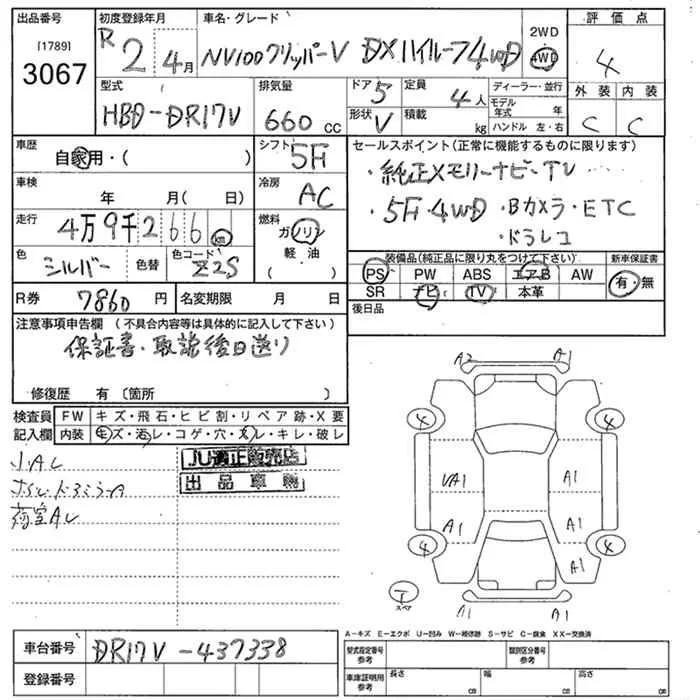 出品番号 初度登録年月 車名・グレード 2WD 評価点
[1789] R2 4月 NV100クリッパーV DXハイルーフ4WD 4WD 4
3067 型式 排気量 ドア 5 定員 ディーラー・並行 外装 内装
HBD-DR17V 660cc 形状 V 4人 モデル年式 年
積載 kg ハンドル 左・右 C C
車歴 自家用・( ) シフト 5F セールスポイント(正常に機能するものに限ります)
車検 年 月( 日) 冷房 AC ・純正メモリーナビ・TV
走行 4万9千266 km 燃料 ガソリン ・5F・4WD・Bカメラ・ETC
軽油 ・ドラレコ
( )
色 シルバー 色替 色コード Z2S 装備品(純正品に限り丸をつけて下さい) 新車保証書
PS PW ABS エアB AW 有・無
R券 7860円 名変期限 月 日 SR ナビ TV 本革
注意事項申告欄 (不具合内容等は具体的に記入して下さい) 後日品
保証書・取説後日送り
修復歴 有 〔箇所 〕
検査員 FW キズ・飛石・ヒビ割・リペア跡・X要
記入欄 内装 キズ・汚レ・コゲ・穴・スレ・キレ・破レ
JU適正販売店
出品車輌
荷室AL
A2 A1
4 4
UA1 A1
A1 A1
4 4 A1
T スペア A1 A1
A-キズ E-エクボ U-凹み W-補修跡 S-サビ C-腐食 XX-交換済
車台番号 DR17V-437338 型式指定番号 参考 類別区分番号 参考
登録番号 車庫証明用 参考 長さ cm 幅 cm 高さ cm